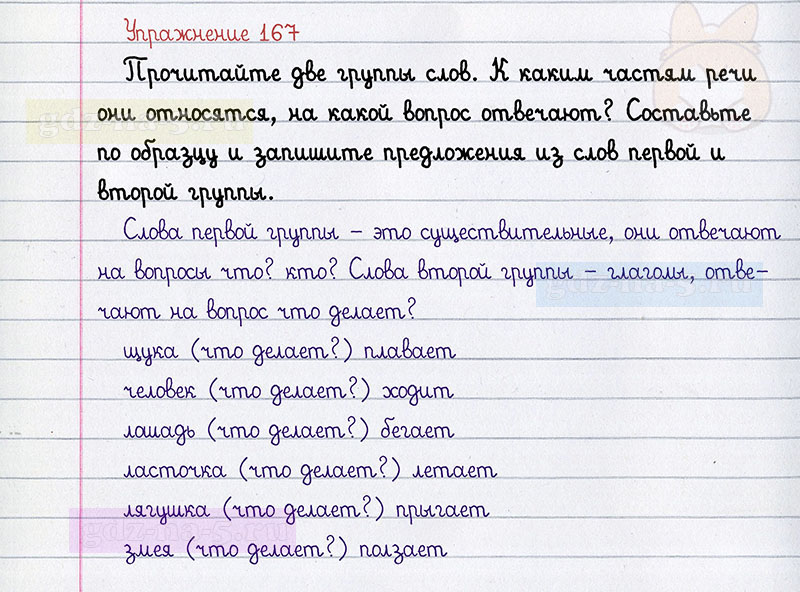 Упражнение 167
Прочитайте две группы слов. К каким частям речи
они относятся, на какой вопрос отвечают? Составьте
по образцу и запишите предложения из слов первой и
второй группы.
Слова первой группы – это существительные, они отвечают
на вопросы что? кто? Слова второй группы – глаголы, отве-
чают на вопрос что делает?
щука (что делает?) плавает
человек (что делает?) ходит
лошадь (что делает?) бегает
ласточка (что делает?) летает
лягушка (что делает?) прыгает
змея (что делает?) ползает
gdz-na-5.ru
gdz-na-5.ru
gdz-na-5.ru